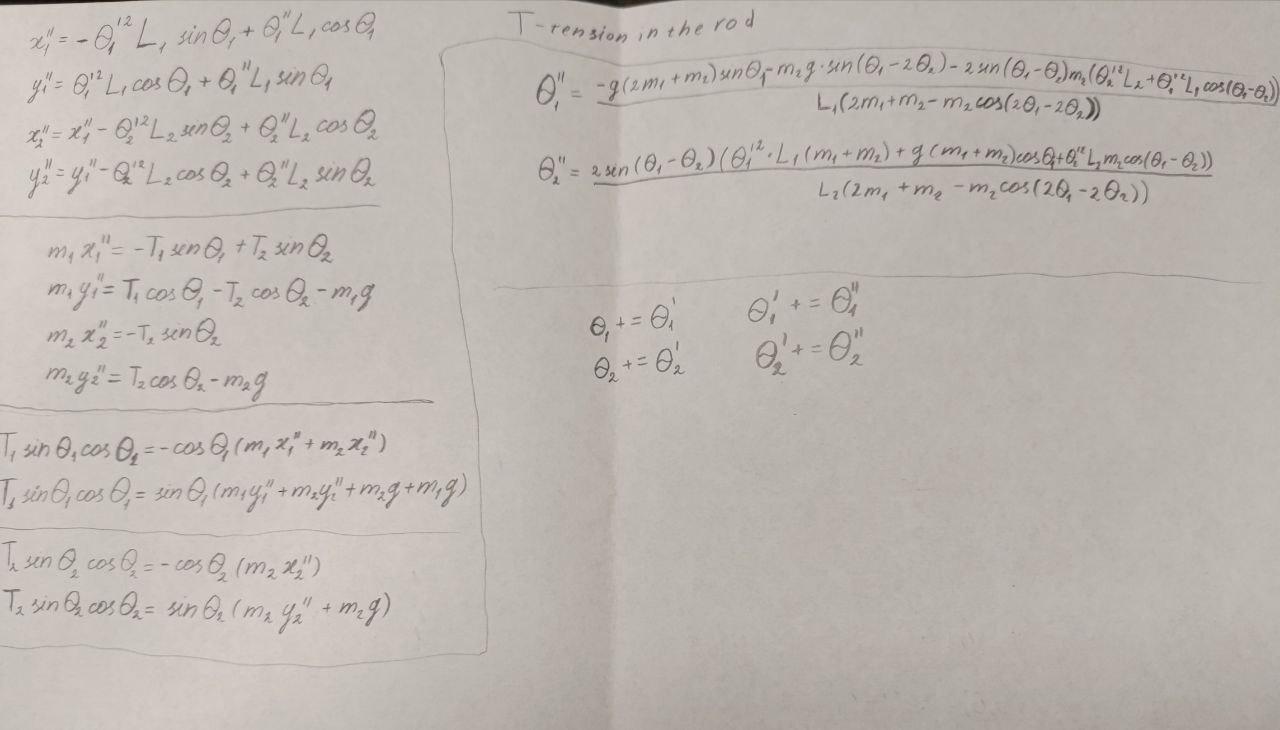 x₁'' = -θ₁'² L₁ sinθ₁ + θ₁'' L₁ cosθ₁
y₁'' = θ₁'² L₁ cosθ₁ + θ₁'' L₁ sinθ₁
x₂'' = x₁'' - θ₂'² L₂ sinθ₂ + θ₂'' L₂ cosθ₂
y₂'' = y₁'' - θ₂'² L₂ cosθ₂ + θ₂'' L₂ sinθ₂
m₁ x₁'' = -T₁ sinθ₁ + T₂ sinθ₂
m₁ y₁'' = T₁ cosθ₁ - T₂ cosθ₂ - m₁g
m₂ x₂'' = -T₂ sinθ₂
m₂ y₂'' = T₂ cosθ₂ - m₂g
T₁ sinθ₁ cosθ₁ = -cosθ₁ (m₁ x₁'' + m₂ x₂'')
T₁ sinθ₁ cosθ₁ = sinθ₁ (m₁y₁'' + m₂y₂'' + m₂g + m₁g)
T₂ sinθ₂ cosθ₂ = -cosθ₂ (m₂ x₂'')
T₂ sinθ₂ cosθ₂ = sinθ₂ (m₂ y₂'' + m₂g)
T-tension in the rod
θ₁'' = (-g(2m₁ + m₂) sinθ₁ - m₂g·sin(θ₁ - 2θ₂) - 2sin(θ₁ - θ₂)m₂(θ₂'² L₂ + θ₁'² L₁ cos(θ₁-θ₂))) / (L₁(2m₁ + m₂ - m₂ cos(2θ₁ - 2θ₂)))
θ₂'' = (2sin(θ₁ - θ₂)(θ₁'²·L₁(m₁ + m₂) + g(m₁ + m₂)cosθ₁ + θ₂'² L₂m₂cos(θ₁ - θ₂))) / (L₂(2m₁ + m₂ - m₂cos(2θ₁ - 2θ₂)))
θ₁ += θ₁' θ₁' += θ₁''
θ₂ += θ₂' θ₂' += θ₂''